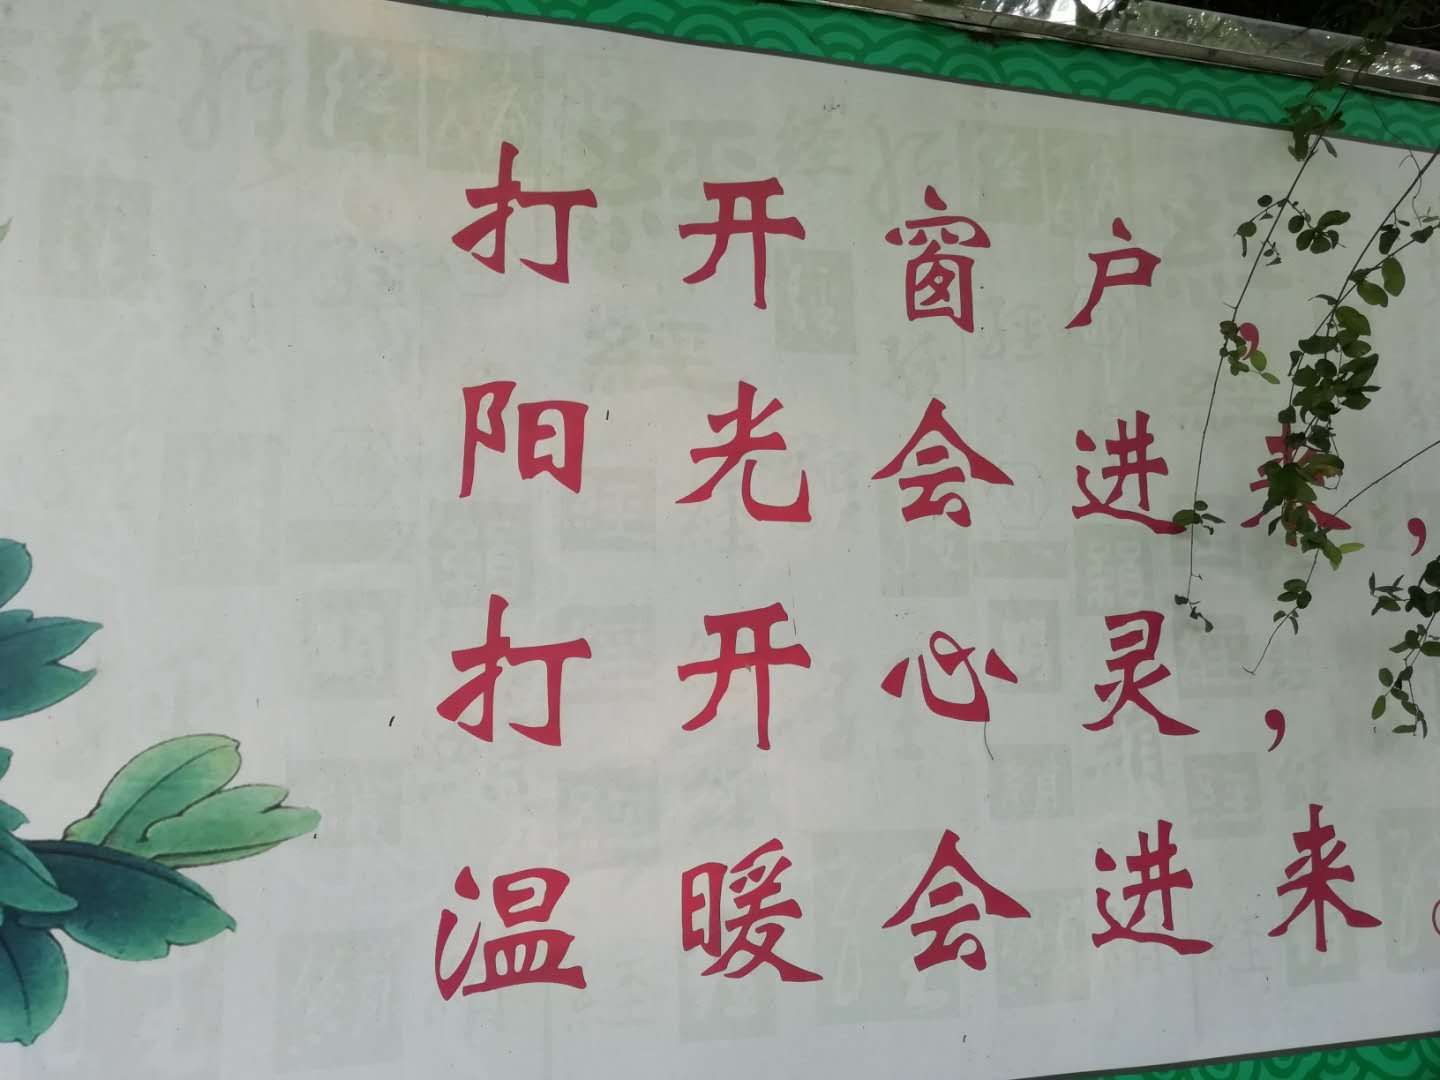 打开窗户，
阳光会进来，
打开心灵，
温暖会进来。